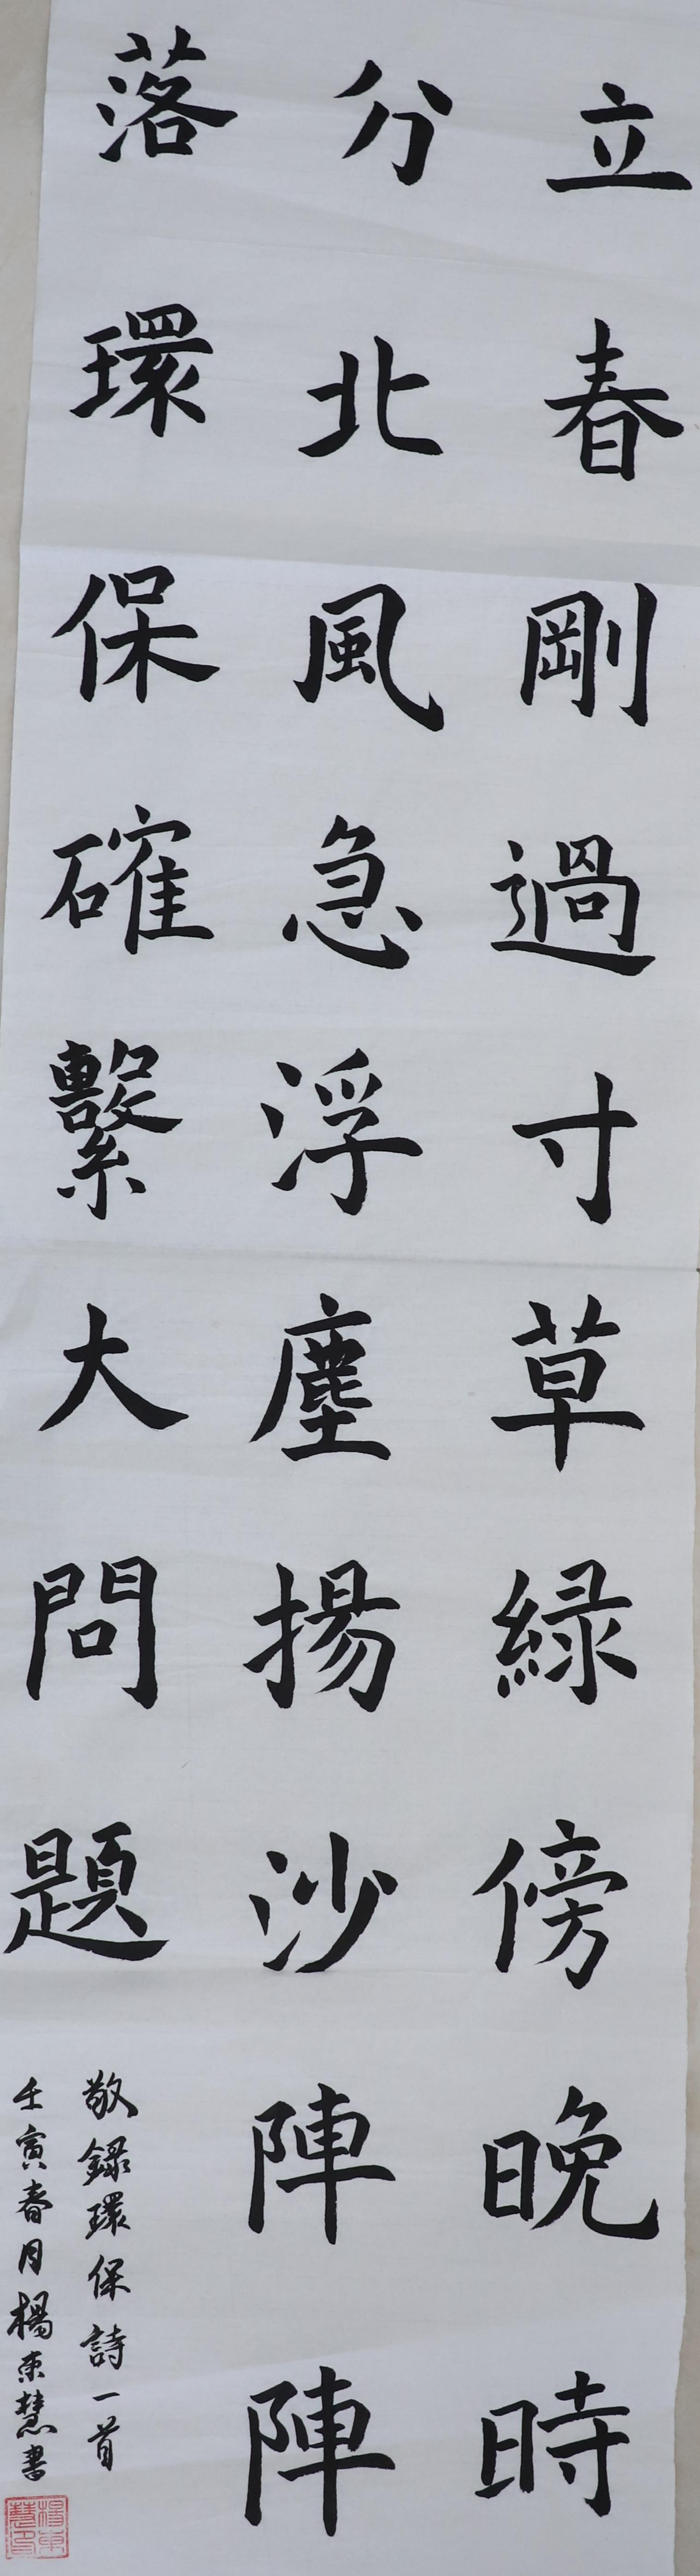 立春剛過寸草緑傍晚時
分北風急浮塵揚沙陣陣
落環保確繫大問題
敬錄環保詩一首
壬寅春月楊東慧書